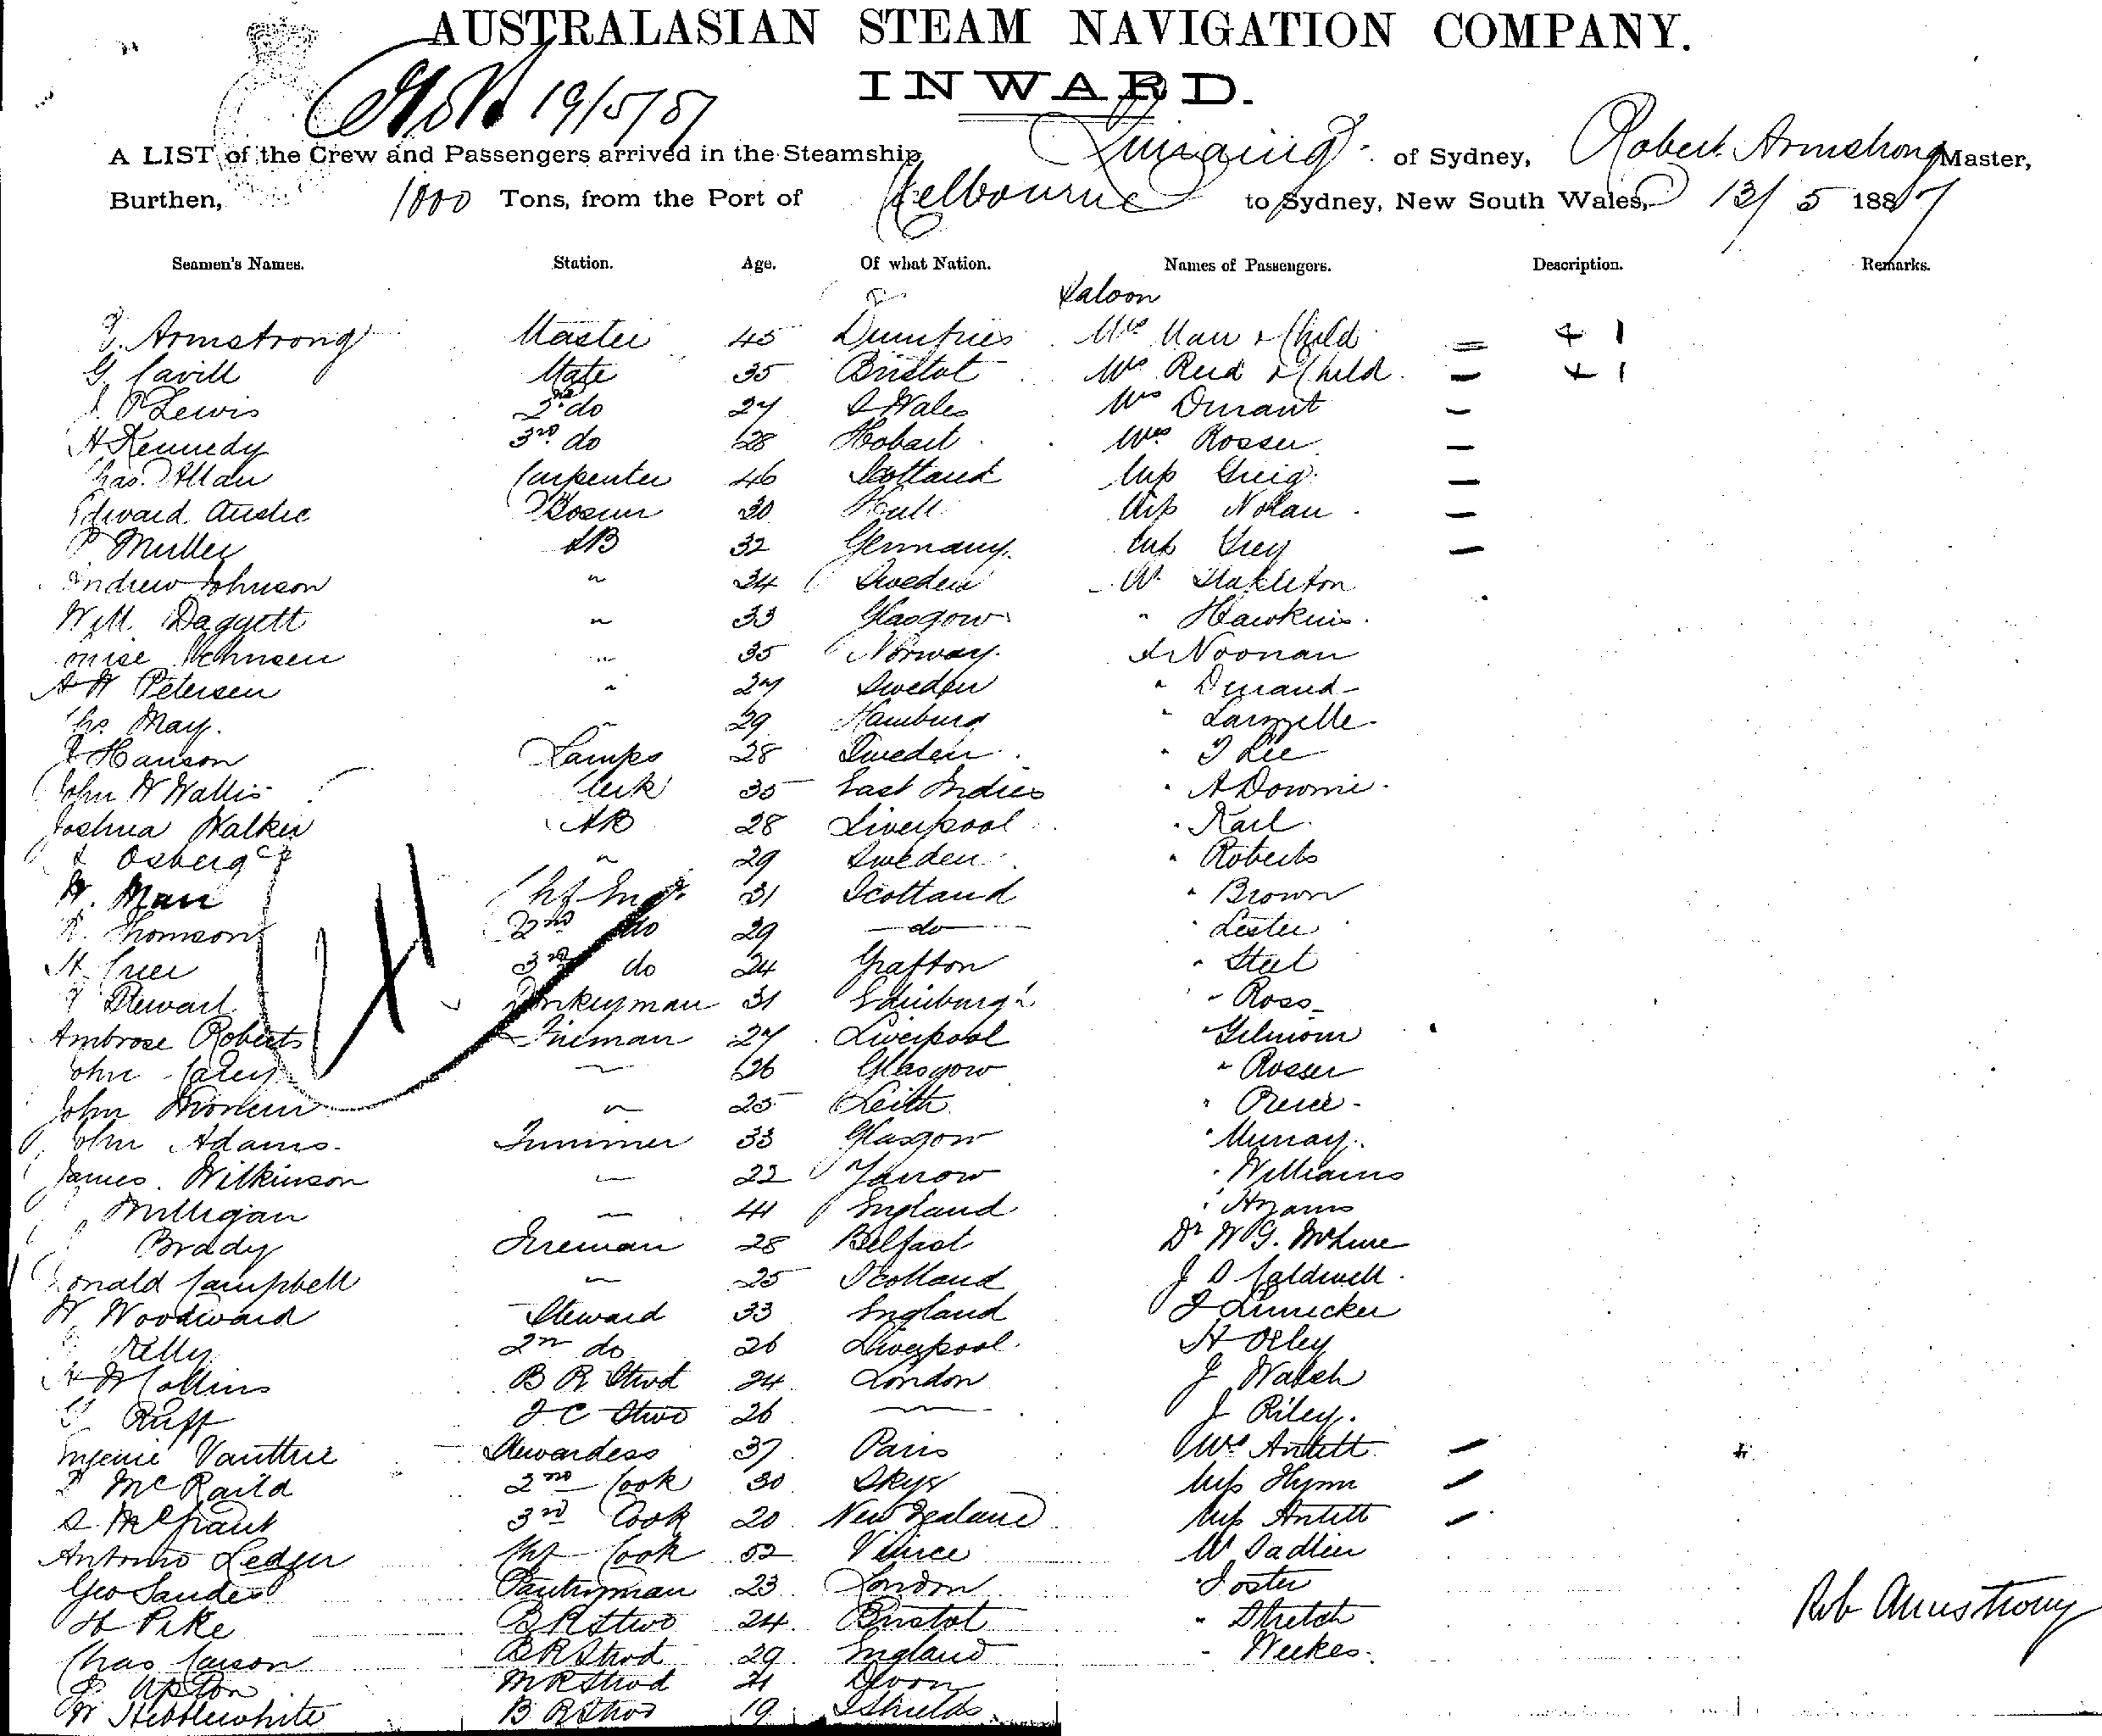 AUSTRALASIAN STEAM NAVIGATION COMPANY.
INWARD.
19/5/87
A LIST of the Crew and Passengers arrived in the Steamship of Sydney, Robert Armstrong Master,
Burthen, 1000 Tons, from the Port of Melbourne to Sydney, New South Wales, 13/5 1887
Seamen's Names. Station. Age. Of what Nation. Names of Passengers. Description. Remarks.
Saloon
Armstrong Master 45 Dumfries Mrs Man & Child = + 1
G. Cavill Mate 35 Bristol Mrs Reid & Child — + 1
P Lewis 2nd do 27 S Wales Mrs Durant —
H Kennedy 3rd do 28 Hobart Mrs Rosser —
Chas. Allan Carpenter 46 Scotland Miss Greig —
Edward Bosun 30 Hull Miss Nolan —
P Muller AB 32 Germany Miss Grey —
Andrew Johnson " 34 Sweden W. Stapleton
Will. Daggett " 33 Glasgow " Hawkins
" 35 Norway Noonan
A W Petersen " 27 Sweden " Durand
Thos May. " 29 Hamburg "
Hanson Lamps 28 Sweden " Lee
John W Wallis Clerk 35 East Indies " A Downie
Joshua Walker AB 28 Liverpool " Karl
Osberg " 29 Sweden " Roberts
W. Man Chf Engr 31 Scotland " Brown
Thomson 2nd do 29 do " Lester
H. 3rd do 24 Grafton " Steel
Stewart Donkeyman 31 Edinburgh " Ross
Ambrose Roberts Fireman 27 Liverpool " Gilmour
John Carey " 26 Glasgow " Rosser
John " 25 Leith " Pierce
John Adams Trimmer 33 Glasgow " Murray
James Wilkinson " 22 Yarrow " Williams
Milligan " 41 England " Hyams
Brady Fireman 28 Belfast Dr W G. McLure
Donald Campbell " 25 Scotland J D Caldwell
W Woodward Steward 33 England J Linicker
Kelly 2nd do 26 Liverpool H Oxley
H W Collins B R Stwd 24 London J Walsh
Ruff F C Stwd 26 " J Riley
Eugenie Vauttrie Stewardess 37 Paris Mrs Antill —
McRaild 2nd Cook 30 Skye Miss Hynn —
A McGrant 3rd Cook 20 New Zealand Miss Antill —
Antonio Ledger Chf Cook 52 Venice W Sadlier
Geo Sandes Pantryman 23 London " Foster Rob Armstrong
H Pike B R Stwd 24 Bristol " Stretch
Chas Carson B R Stwd 29 England " Weekes
Upton M R Stwd 21 Devon
W Hebblewhite B R Stwd 19 S Shields